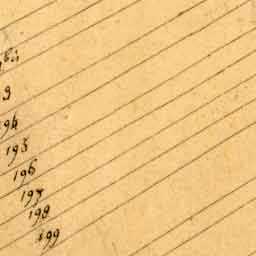 bis
3
194
195
196
197
198
199